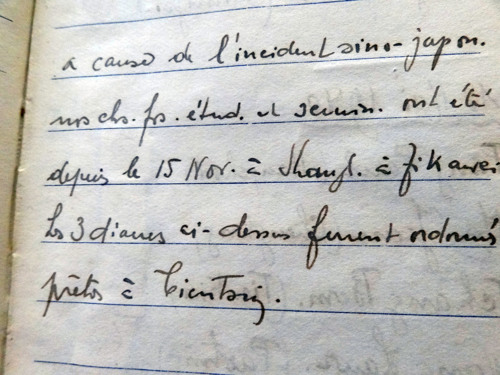 a cause de l'incident sino-japon.
nos chs. frs. étud. et sémin. ont été
depuis le 15 Nov. à Shangh. à Zikawei
les 3 diacres ci-dessus furent ordonnés
prêtres à Tientsin.